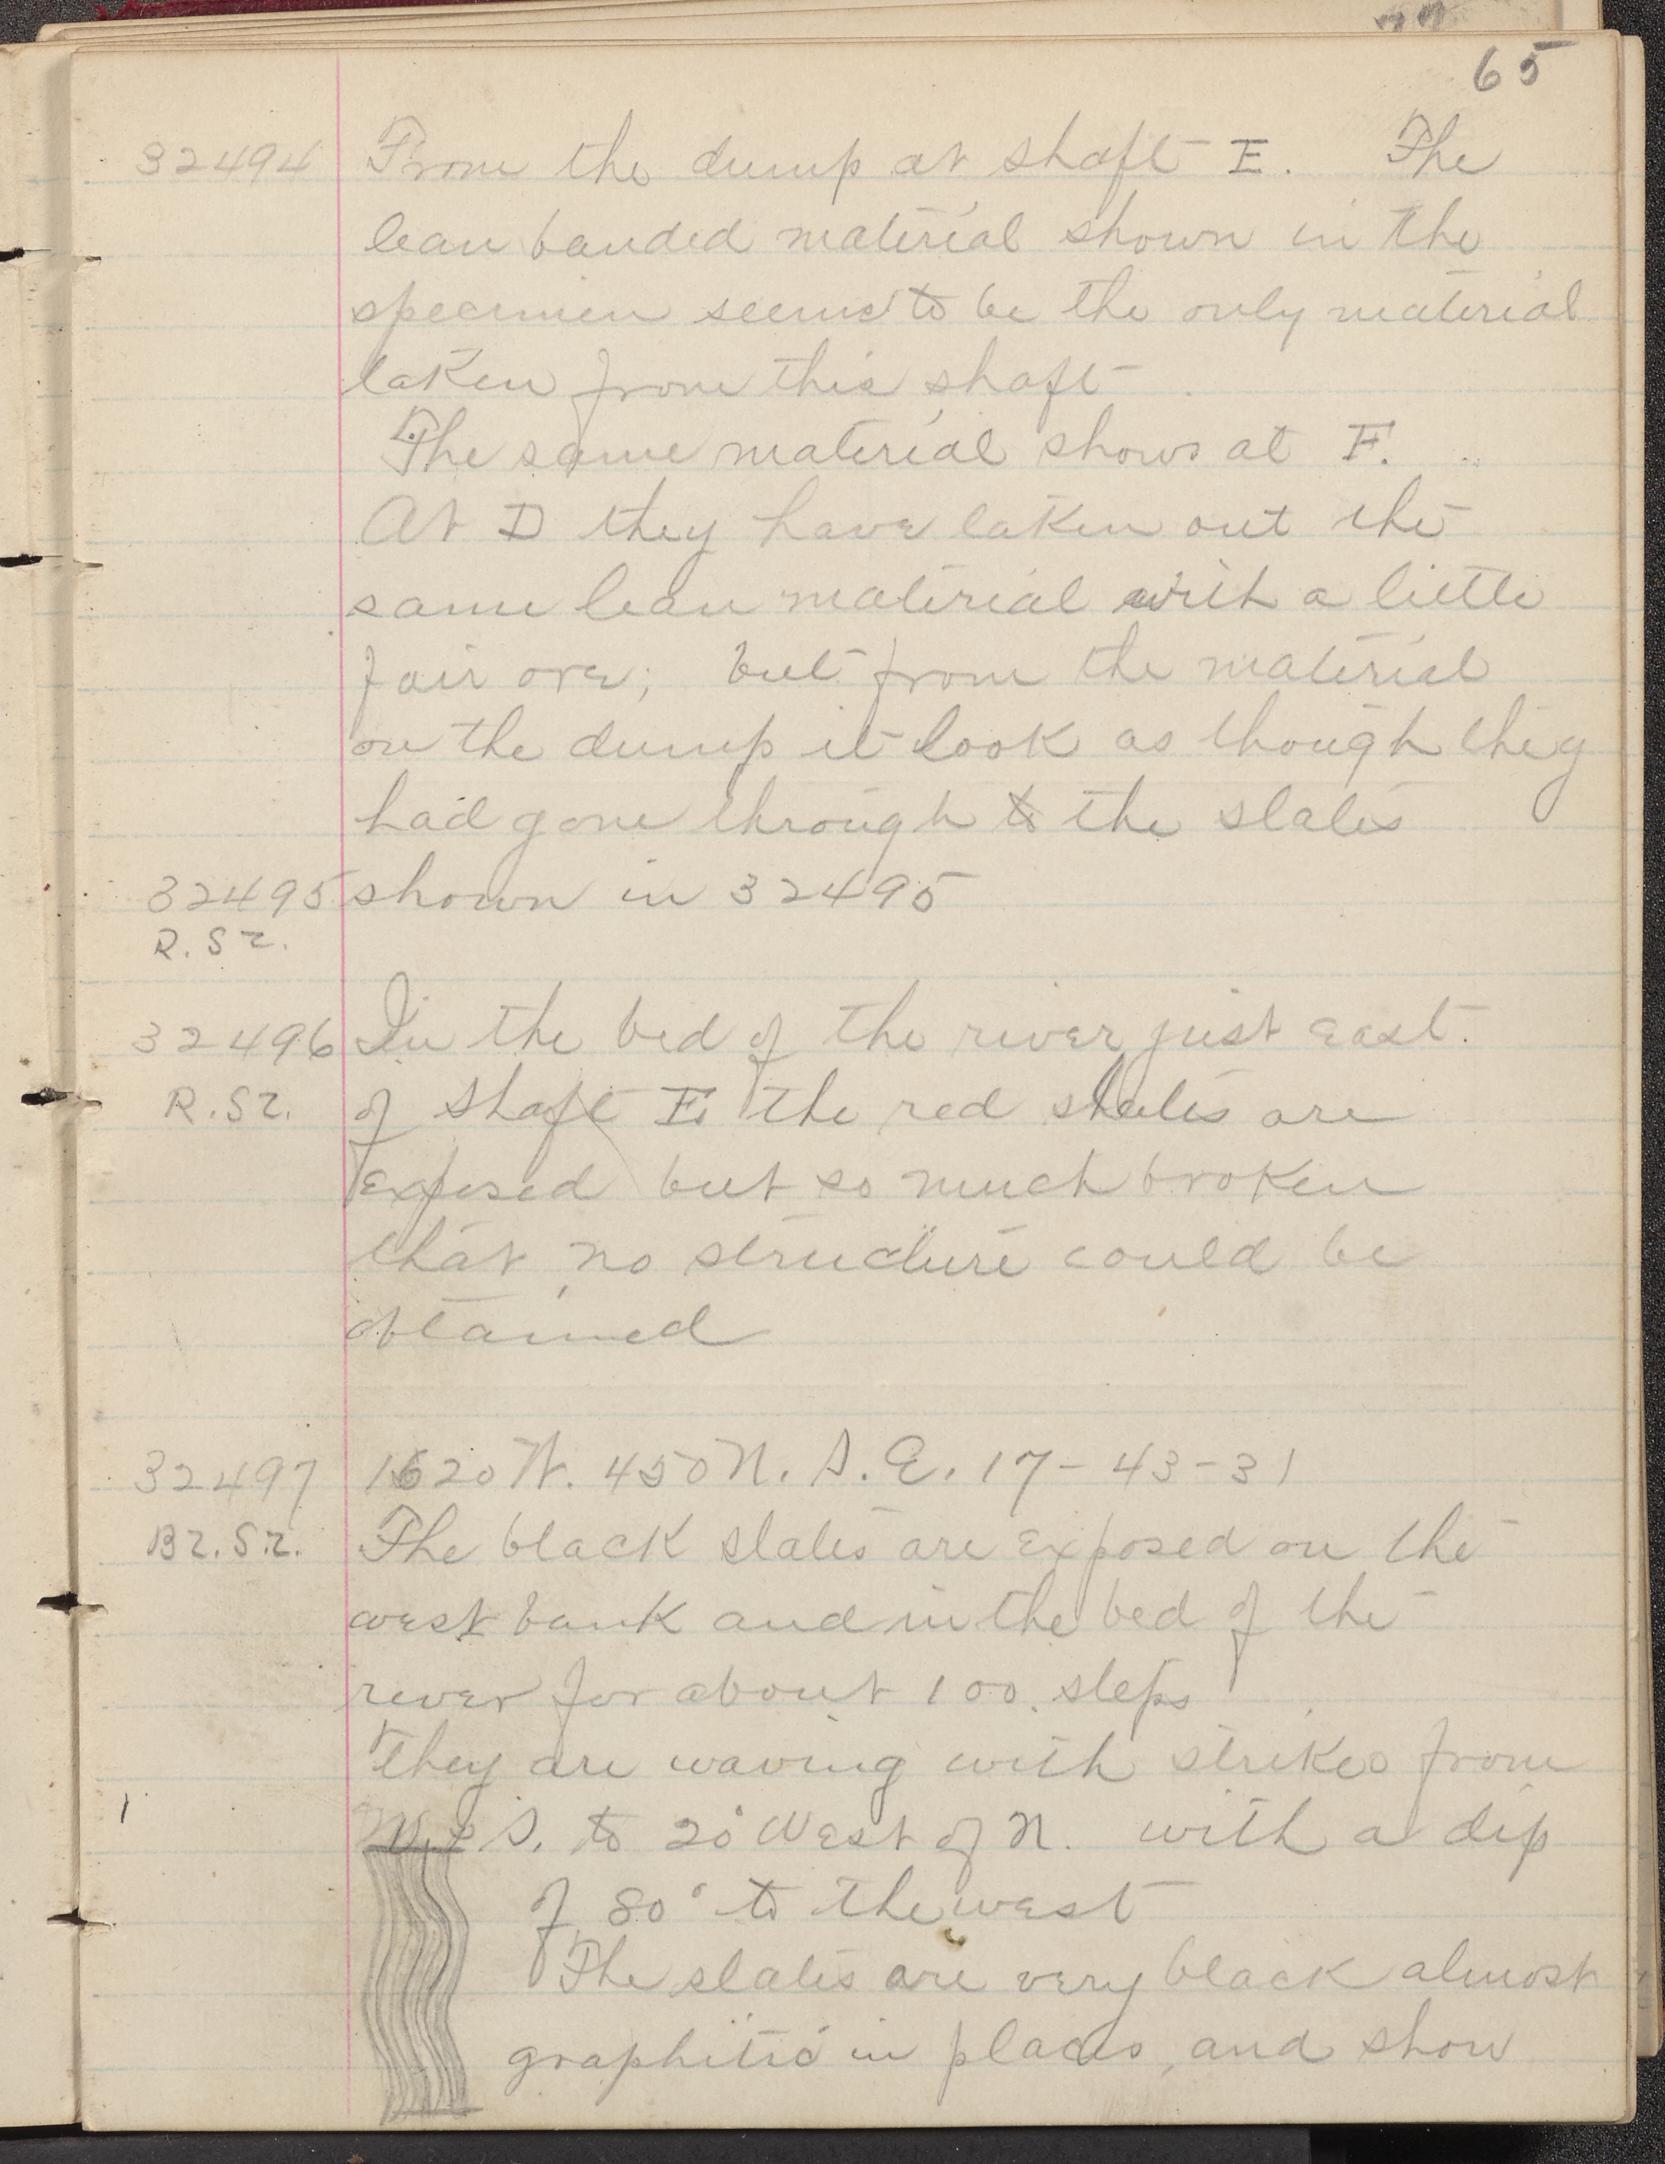 65
32494 From the dump at shaft E. The
lean banded material shown in the
specimen seems to be the only material
taken from this shaft
The same material shows at F.
At D they have taken out the
same lean material with a little
fair ore; but from the material
on the dump it look as though they
had gone through to the slates
32495 shown in 32495
R. Sl.
32496 In the bed of the river just east
R. Sl. of shaft E. the red slates are
exposed but so much broken
that no structure could be
obtained
32497 1620 W. 450 N. S. E. 17-43-31
Bl. Sl. The black slates are exposed on the
west bank and in the bed of the
river for about 100 steps
They are waving with strikes from
N. & S. to 20° West of N. with a dip
of 80° to the west
The slates are very black almost
graphitic in places, and show